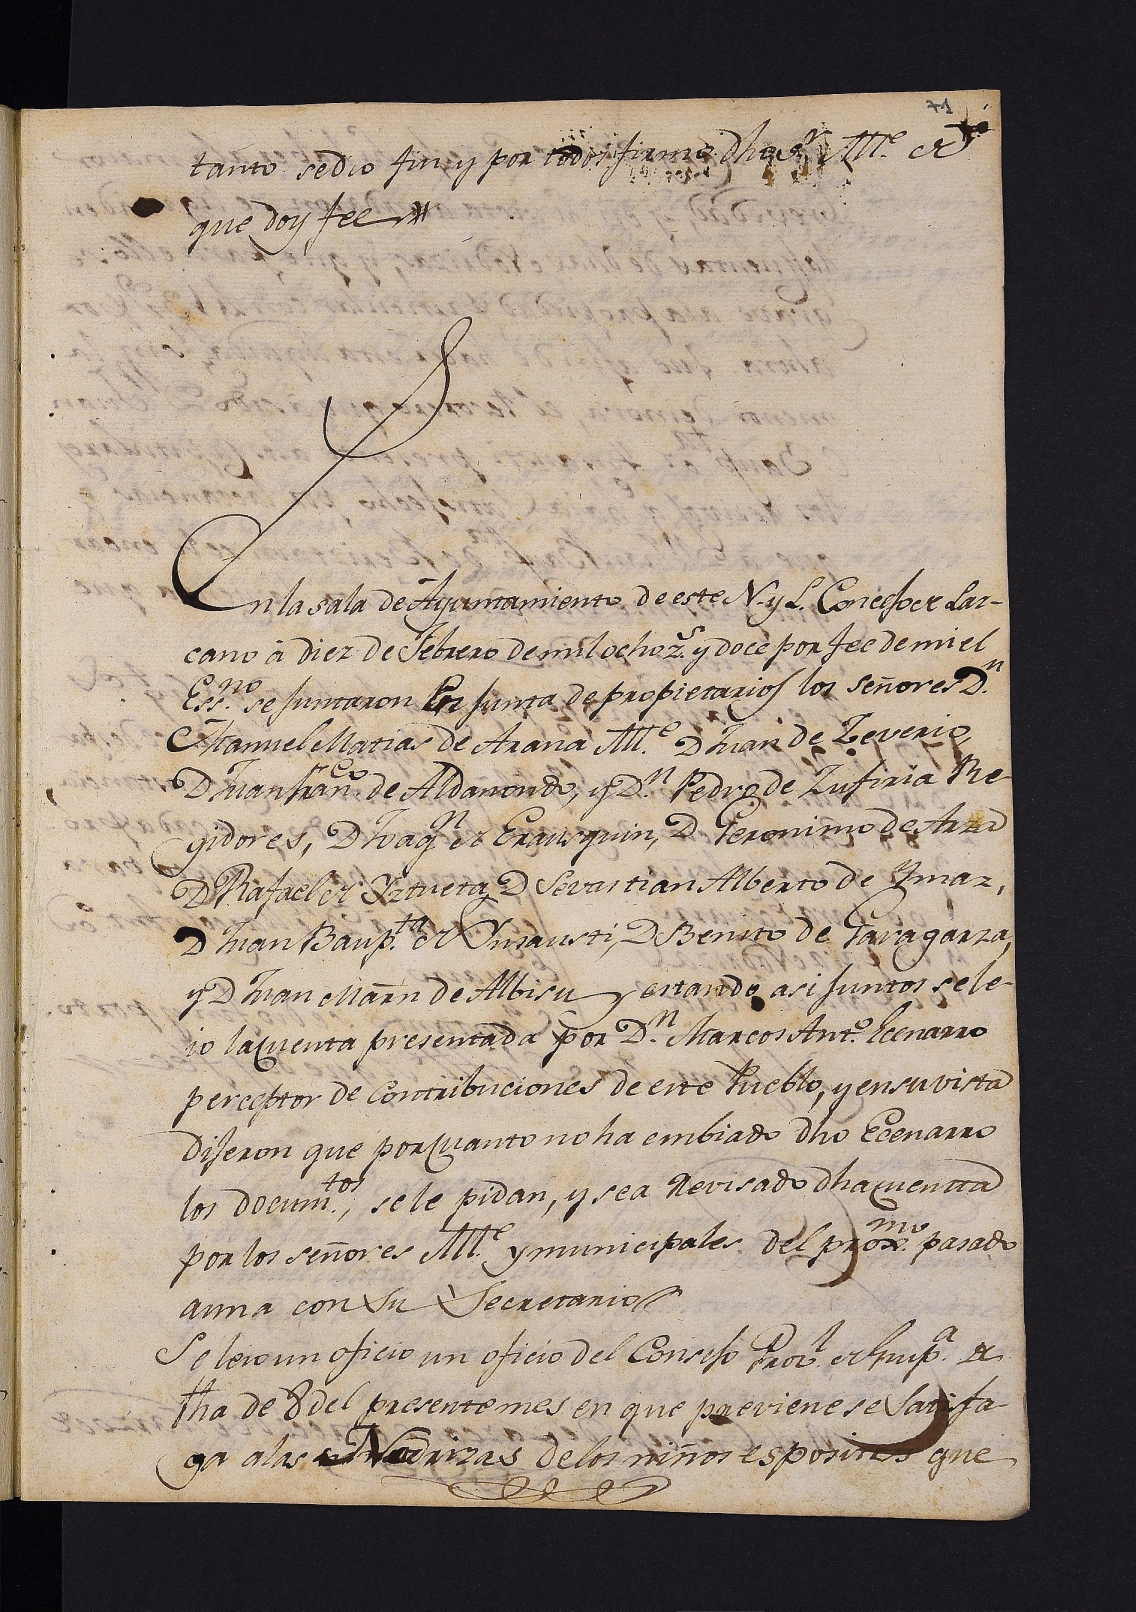 71
tanto se dio fin y por todos firmo dho Sr Alle. de
que doy fee
En la sala de Ayuntamiento de este N. y L. Concejo de Laz-
cano á diez de Febrero de mil ochozs. y doce por fee de mi el
Essno. se juntaron en junta de propietarios los señores Dn.
Manuel Matias de Arana Alle. D Juan de Zeverio,
D Juan Franco de Aldanondo, y Dn. Pedro de Zufiria Re-
gidores, D Joaqn de Erausquin, D Geronimo de Arza
D Rafael de Yztueta, D Sevastian Alberto de Ymaz,
D Juan Baupta. de Ynsausti, D Benito de Garagarza,
y D Juan Marn de Albisu y estando asi juntos se le-
io la cuenta presentada por Dn. Marcos Anto. Ecenarro
perceptor de contribuciones de este Pueblo, y en su vista
dijeron que por cuanto no ha embiado dho Ecenarro
los documtos., se le pidan, y sea revisado dha cuenta
por los señores Alle. y municipales del proxmo. pasado
a una con su Secretario
Se leio un oficio un oficio del Consejo Provl. de Guipa. de
fha de 8 del presente mes en que previene se satisfa-
ga a las Nodrizas de los niños espositos que